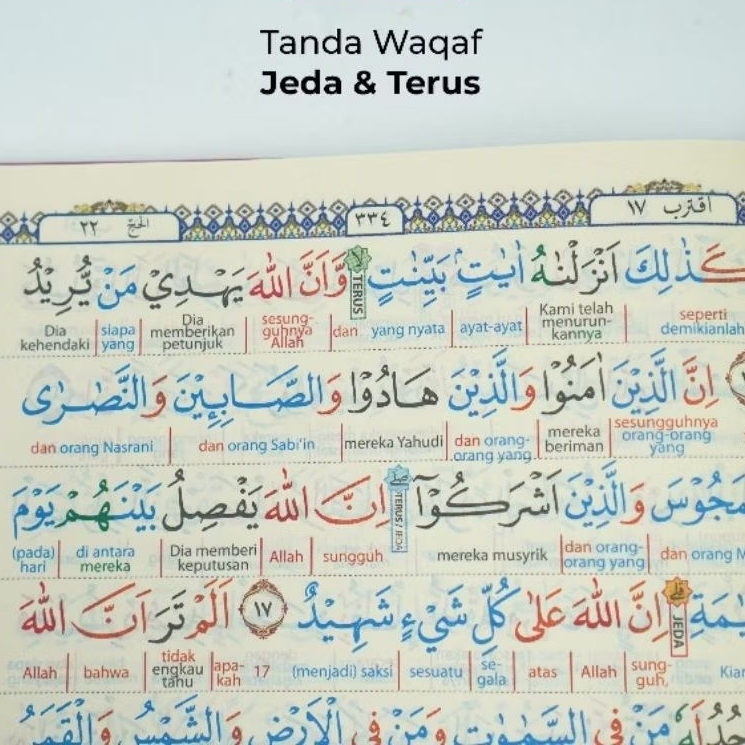 Tanda Waqaf
Jeda & Terus
اقترب ١٧
٣٣٤
الحج ٢٢
كَذٰلِكَ اَنْزَلْنٰهُ اٰيٰتٍۢ بَيِّنٰتٍۙ لا TERUS وَّاَنَّ اللّٰهَ يَهْدِيْ مَنْ يُّرِيْدُ
seperti demikianlah Kami telah menurun-kannya ayat-ayat yang nyata dan sesung-guhnya Allah Dia memberikan petunjuk siapa yang Dia kehendaki
اِنَّ الَّذِيْنَ اٰمَنُوْا وَالَّذِيْنَ هَادُوْا وَالصَّابِـِٕيْنَ وَالنَّصٰرٰى
sesungguhnya orang-orang yang mereka beriman dan orang-orang yang mereka Yahudi dan orang Sabi'in dan orang Nasrani
مَجُوْسَ وَالَّذِيْنَ اَشْرَكُوْٓا TERUS / JEDA اِنَّ اللّٰهَ يَفْصِلُ بَيْنَهُمْ يَوْمَ
dan orang M dan orang-orang yang mereka musyrik sungguh Allah Dia memberi keputusan di antara mereka (pada) hari
يٰمَةِ JEDA اِنَّ اللّٰهَ عَلٰى كُلِّ شَيْءٍ شَهِيْدٌ ١٧ اَلَمْ تَرَ اَنَّ اللّٰهَ
Kiam sung-guh, Allah atas se-gala sesuatu (menjadi) saksi 17 apa-kah tidak engkau tahu bahwa Allah
مَنْ فِى السَّمٰوٰتِ وَمَنْ فِى الْاَرْضِ وَالشَّمْسُ وَالْقَمَرُ